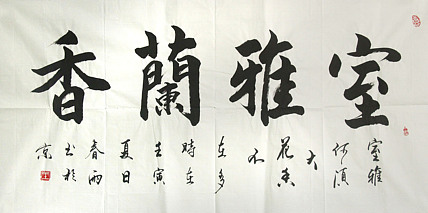 室雅蘭香
室雅
何須
大
花香
不
在多
時在
壬寅
夏日
春雨
书於
京